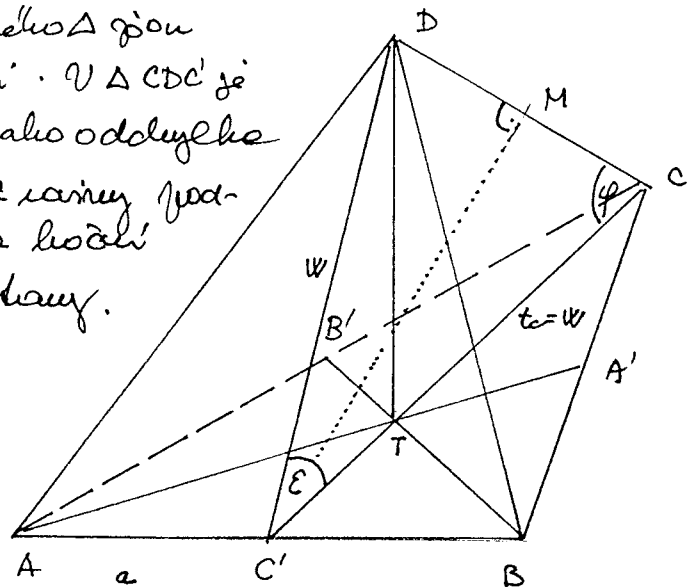 ného Δ jsou
. V Δ CDC' je
jako odchylka
roviny pod-
a boční
strany.
D
M
C
φ
w
t_c = w
B'
A'
T
ε
A
a
C'
B